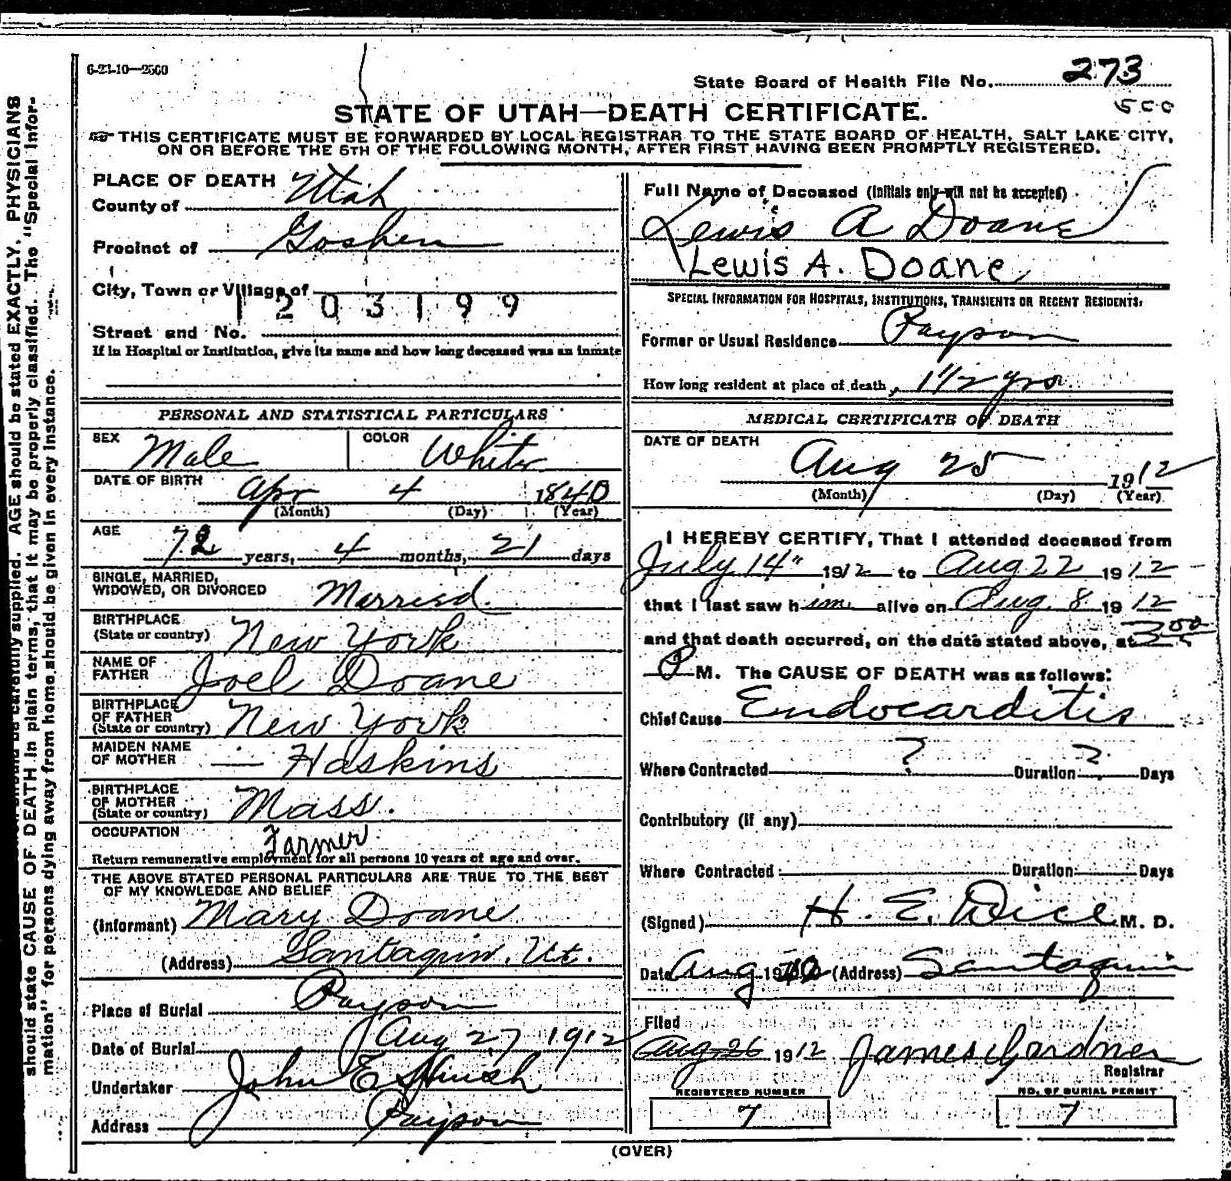 6-23-10—2500
State Board of Health File No. 273
500
STATE OF UTAH—DEATH CERTIFICATE.
THIS CERTIFICATE MUST BE FORWARDED BY LOCAL REGISTRAR TO THE STATE BOARD OF HEALTH, SALT LAKE CITY,
ON OR BEFORE THE 5TH OF THE FOLLOWING MONTH, AFTER FIRST HAVING BEEN PROMPTLY REGISTERED.
PLACE OF DEATH
County of Utah
Precinct of Goshen
City, Town or Village of
1203199
Street and No.
If in Hospital or Institution, give its name and how long deceased was an inmate
PERSONAL AND STATISTICAL PARTICULARS
SEX Male COLOR White
DATE OF BIRTH Apr 4 1840
(Month) (Day) (Year)
AGE 72 years, 4 months, 21 days
SINGLE, MARRIED,
WIDOWED, OR DIVORCED Married.
BIRTHPLACE
(State or country) New York
NAME OF
FATHER Joel Doane
BIRTHPLACE
OF FATHER
(State or country) New York
MAIDEN NAME
OF MOTHER — Haskins
BIRTHPLACE
OF MOTHER
(State or country) Mass.
OCCUPATION Farmer
Return remunerative employment for all persons 10 years of age and over.
THE ABOVE STATED PERSONAL PARTICULARS ARE TRUE TO THE BEST
OF MY KNOWLEDGE AND BELIEF
(Informant) Mary Doane
(Address) Santaquin, Ut.
Place of Burial Payson
Date of Burial Aug 27 1912
Undertaker John E
Address Payson
Full Name of Deceased (Initials only will not be accepted)
Lewis A Doane
Lewis A. Doane
SPECIAL INFORMATION FOR HOSPITALS, INSTITUTIONS, TRANSIENTS OR RECENT RESIDENTS:
Former or Usual Residence Payson
How long resident at place of death, 1 1/2 yrs.
MEDICAL CERTIFICATE OF DEATH
DATE OF DEATH
Aug 25 1912
(Month) (Day) (Year)
I HEREBY CERTIFY, That I attended deceased from
July 14" 1912 to Aug 22 1912
that I last saw him alive on Aug. 8 1912
and that death occurred, on the date stated above, at 3 00
P M. The CAUSE OF DEATH was as follows:
Chief Cause Endocarditis
Where Contracted ? Duration ? Days
Contributory (if any)
Where Contracted Duration Days
(Signed) H. E. Dice M. D.
Date Aug 19 (Address) Santaquin
Filed
Aug 26 1912 James Gardner
Registrar
REGISTERED NUMBER
7
NO. OF BURIAL PERMIT
7
(OVER)
AGE should be stated EXACTLY. PHYSICIANS
should state CAUSE OF DEATH in plain terms, that it may be properly classified. The "Special Infor-
mation" for persons dying away from home should be given in every instance.